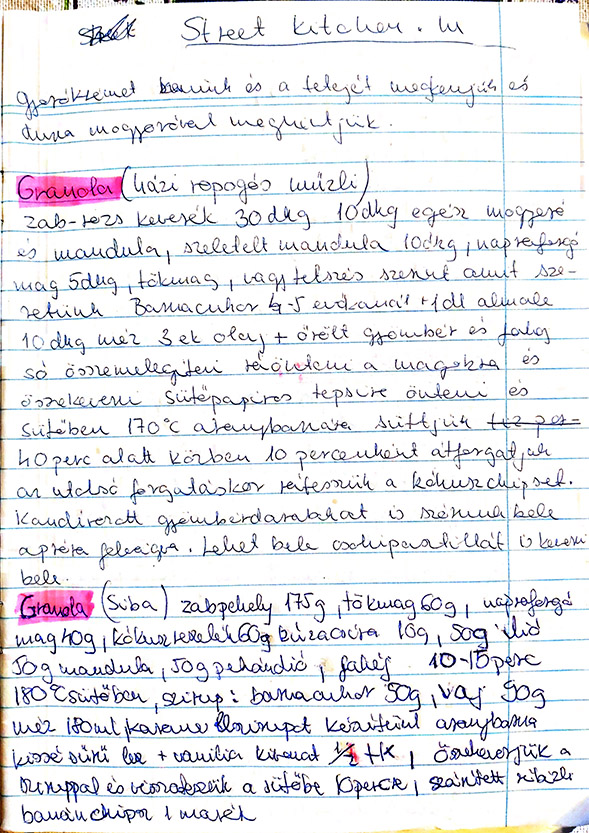 Street kitchen. hu
gyerőkremet kenünk és a tetejét megkenjük és
durva mogyoróval meghintjük.
Granola (házi ropogós müzli)
zab-rozs keverék 30dkg 10dkg egész mogyoró
és mandula, szeletelt mandula 10dkg, napraforgó
mag 5dkg, tökmag, vagy tetszés szerint amit sze-
retünk Barnacukor 4-5 evőkanál + 1dl almale
10dkg méz 3 ek olaj + őrölt gyömbér és fahéj
só összemelegíteni ráönteni a magokra és
összekeverni sütőpapíros tepsire önteni és
sütőben 170°C aranybarnára sütjük
40 perc alatt közben 10 percenként átforgatjuk
az utolsó forgatáskor rátesszük a kókuszchipset.
Kandírozott gyömbérdarabokat is szórunk bele
apróra felvágva. Lehet bele csokipasztillát is keverni
bele.
Granola (Siba) zabpehely 175g, tökmag 60g, napraforgó
mag 40g, kókuszreszelék 60g búzacsíra 10g, 50g dió
50g mandula, 50g pekándió, fahéj 10-15 perc
180°C sütőben, szirup: barnacukor 50g, vaj 50g
méz 180ml karamellszirupot készítünk aranybarna
kissé sűrű lesz + vanília kivonat 1/2 tk, összekeverjük a
sziruppal és visszatesszük a sütőbe 10 percre, szárított ribizli
banánchips 1 marék